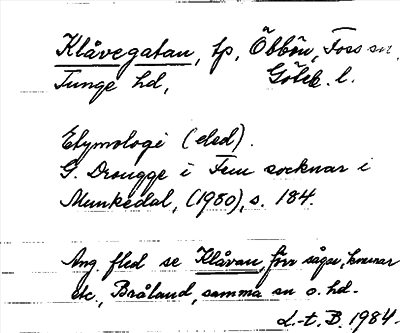 Klåvegatan, lp, Öbbön, Foss sn,
Tunge hd, Göteb. l.
Etymologi (eled).
G. Drougge i Fem socknar i
Munkedal, (1980), s. 184.
Ang. fled se Klåvan, förr såge, kvarnar
etc, Bråland, samma sn o. hd.
L.-t. B. 1984.